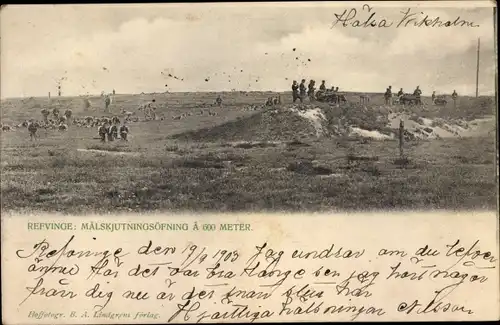 Hälsa Wikholm
REFVINGE: MÅLSKJUTNINGSÖFNING Å 600 METER.
Refvinge den 19/9 1903 Jag undrar om du lefver
ännu för det var bra länge sen jag hörde något
från dig nu är det snart slut här
Hjärtliga hälsningar Nilsson
Hoffotogr. B. A. Lindgrens förlag.